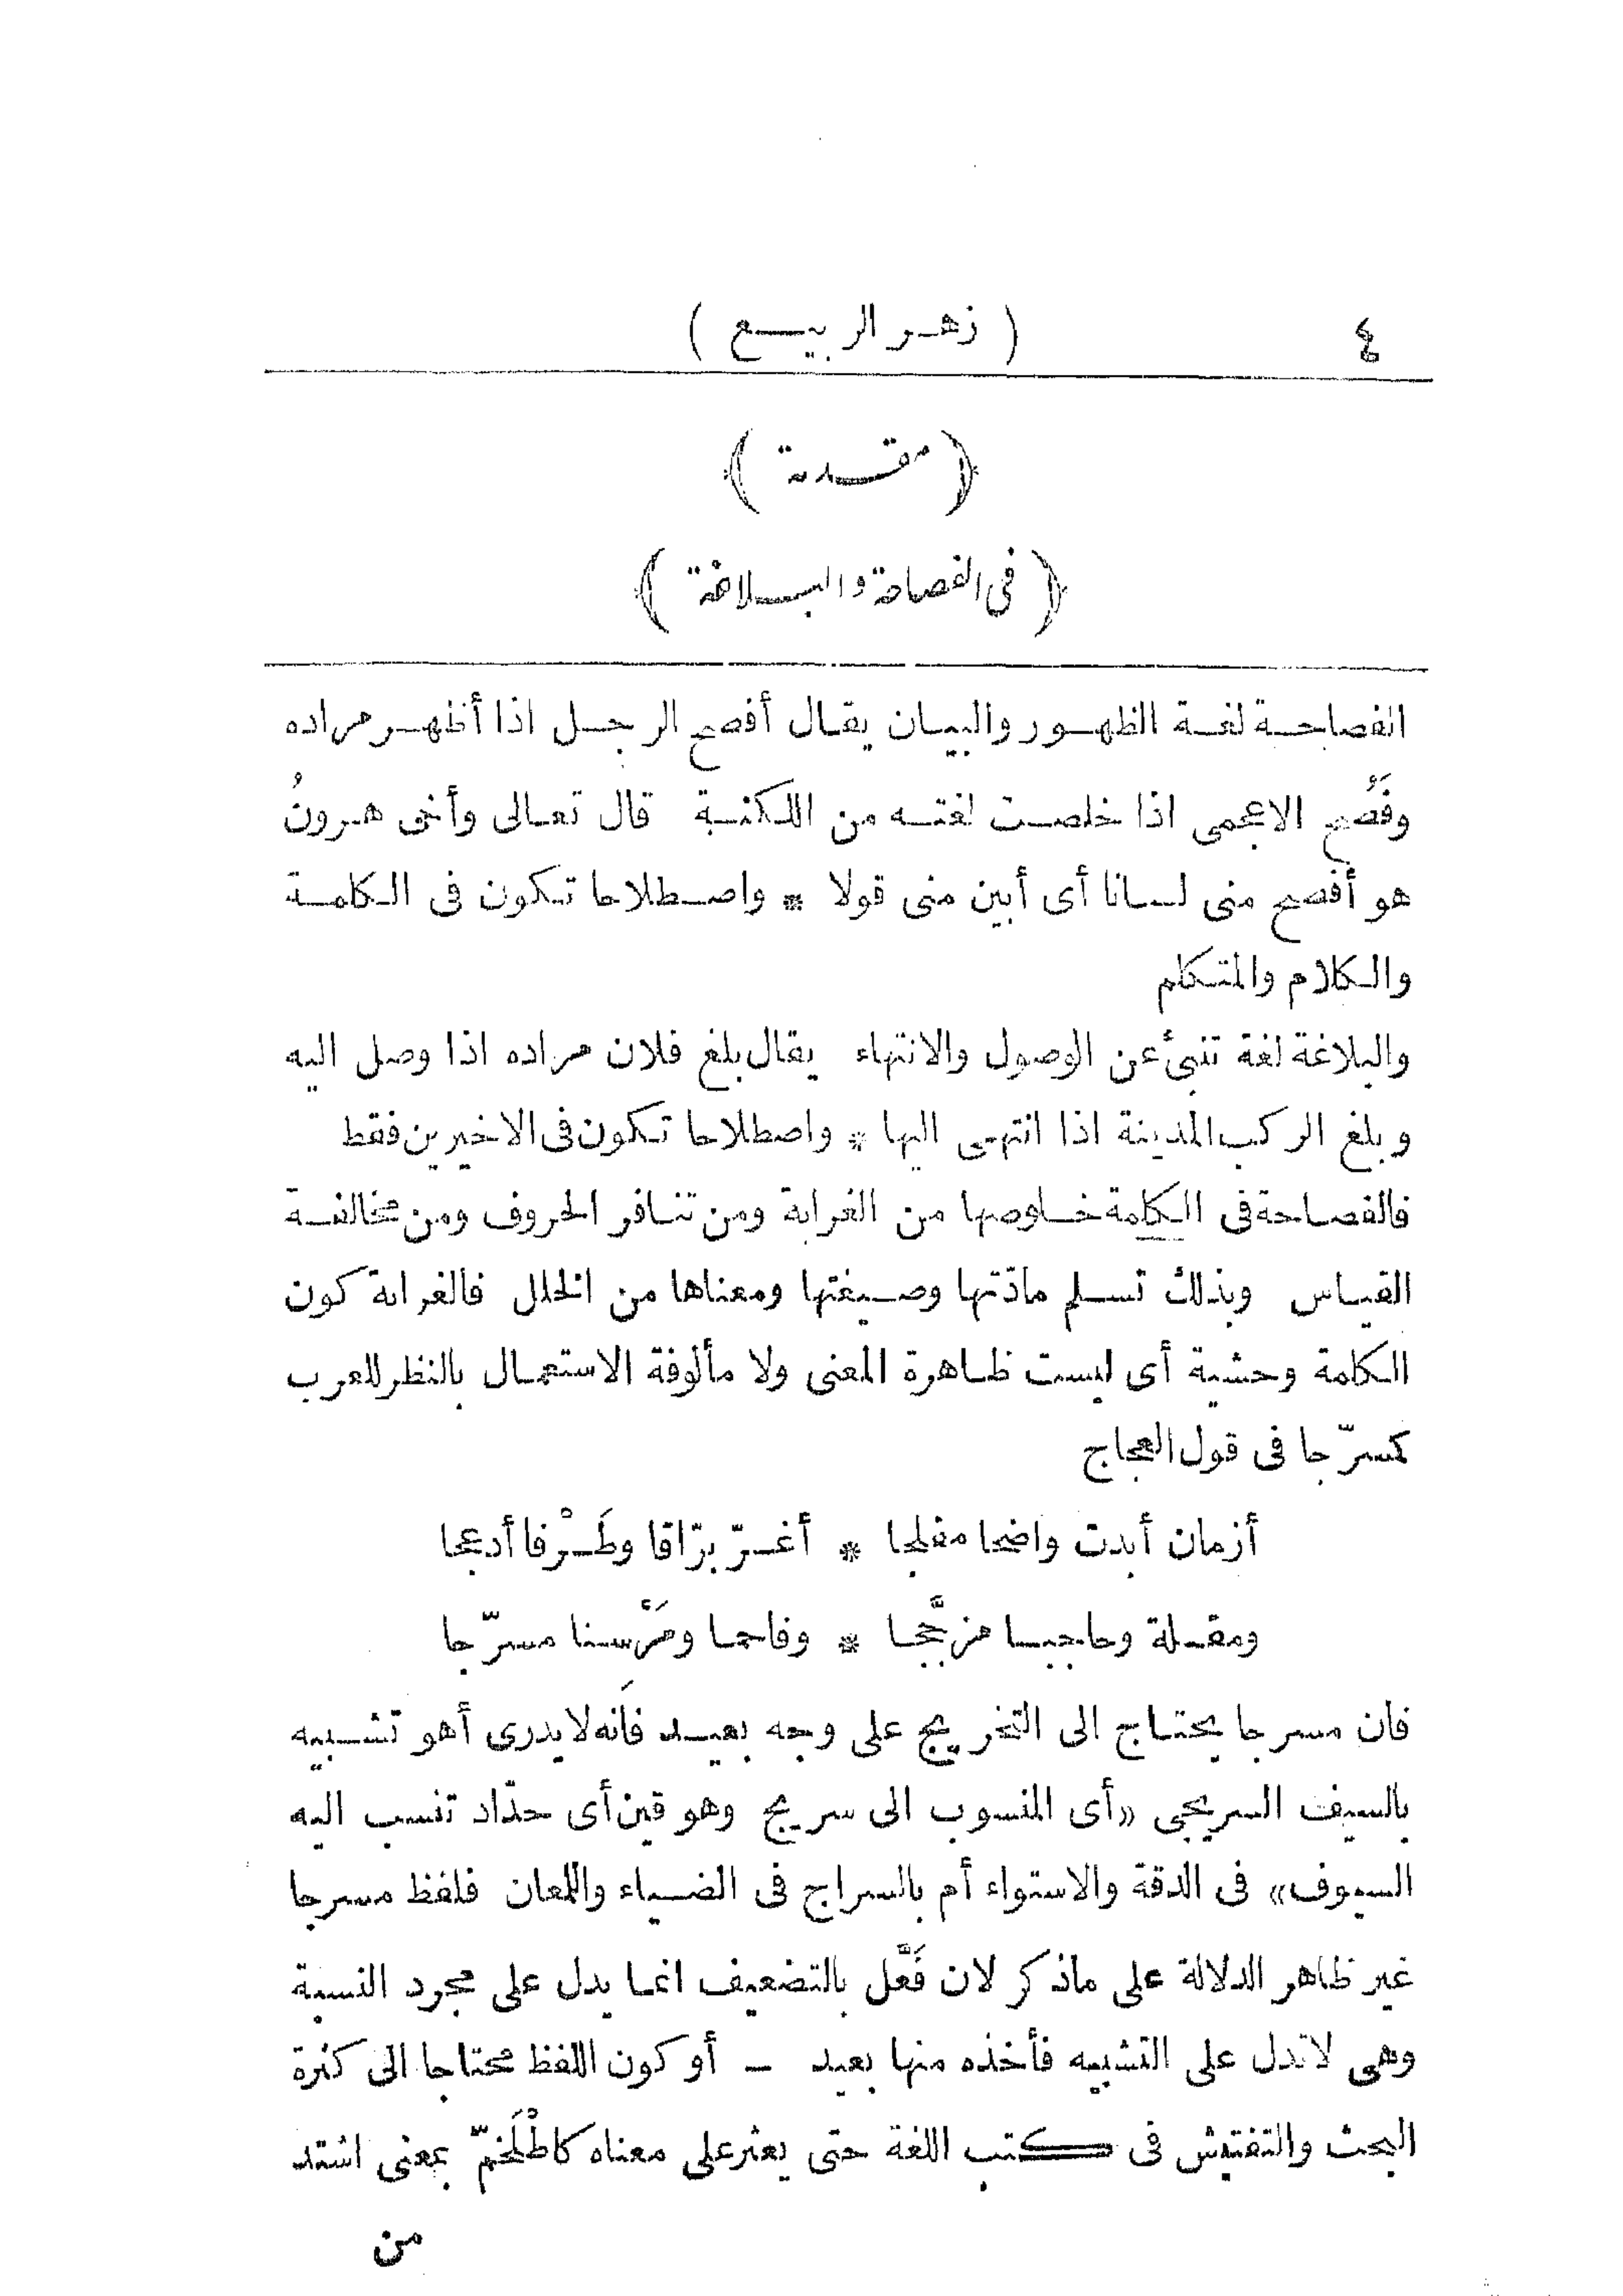 ٤ ( زهر الربيع )
﴿ مقدمة ﴾
﴿ فى الفصاحة والبلاغة ﴾
الفصاحة لغة الظهور والبيان يقال أفصح الرجل اذا أظهر مراده
وفَصُح الاعجمى اذا خلصت لغته من اللكنة قال تعالى وأخى هرونُ
هو أفصح منى لسانا أى أبين منى قولا * واصطلاحا تكون فى الكلمة
والكلام والمتكلم
والبلاغة لغة تنبئ عن الوصول والانتهاء يقال بلغ فلان مراده اذا وصل اليه
وبلغ الركب المدينة اذا انتهى اليها * واصطلاحا تكون فى الاخيرين فقط
فالفصاحة فى الكلمة خلوصها من الغرابة ومن تنافر الحروف ومن مخالفة
القياس وبذلك تسلم مادّتها وصيغتها ومعناها من الخلل فالغرابة كون
الكلمة وحشية أى ليست ظاهرة المعنى ولا مألوفة الاستعمال بالنظر للعرب
كمسرّجا فى قول العجاج
أزمان أبدت واضحا مفلجا * أغرّ برّاقا وطَرْفا أدعجا
ومقلة وحاجبا مزجَّجا * وفاحما ومَرْسنا مسرّجا
فان مسرجا يحتاج الى التخريج على وجه بعيد فَانه لا يدرى أهو تشبيه
بالسيف السريجى «أى المنسوب الى سريج وهو قين أى حدّاد تنسب اليه
السيوف» فى الدقة والاستواء أم بالسراج فى الضياء واللمعان فلفظ مسرجا
غير ظاهر الدلالة على ماذكر لان فَعَّل بالتضعيف انما يدل على مجرد النسبة
وهى لاتدل على التشبيه فأخذه منها بعيد – أو كون اللفظ محتاجا الى كثرة
البحث والتفتيش فى كتب اللغة حتى يعثر على معناه كاطْلَخمّ بمعنى اشتد
من